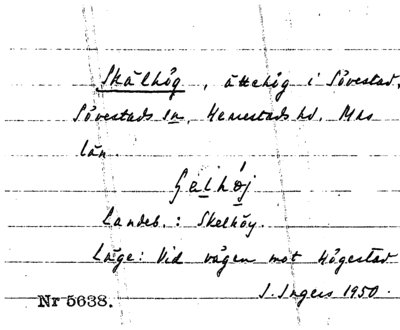 Skälhög, ättehög i Sövestad,
Sövestads sn, Herrestads hd, Mhs
län.
Landeb.: Skelhöy.
Läge: Vid vägen mot Högestad
I. Ingers 1950.
Nr 5638.